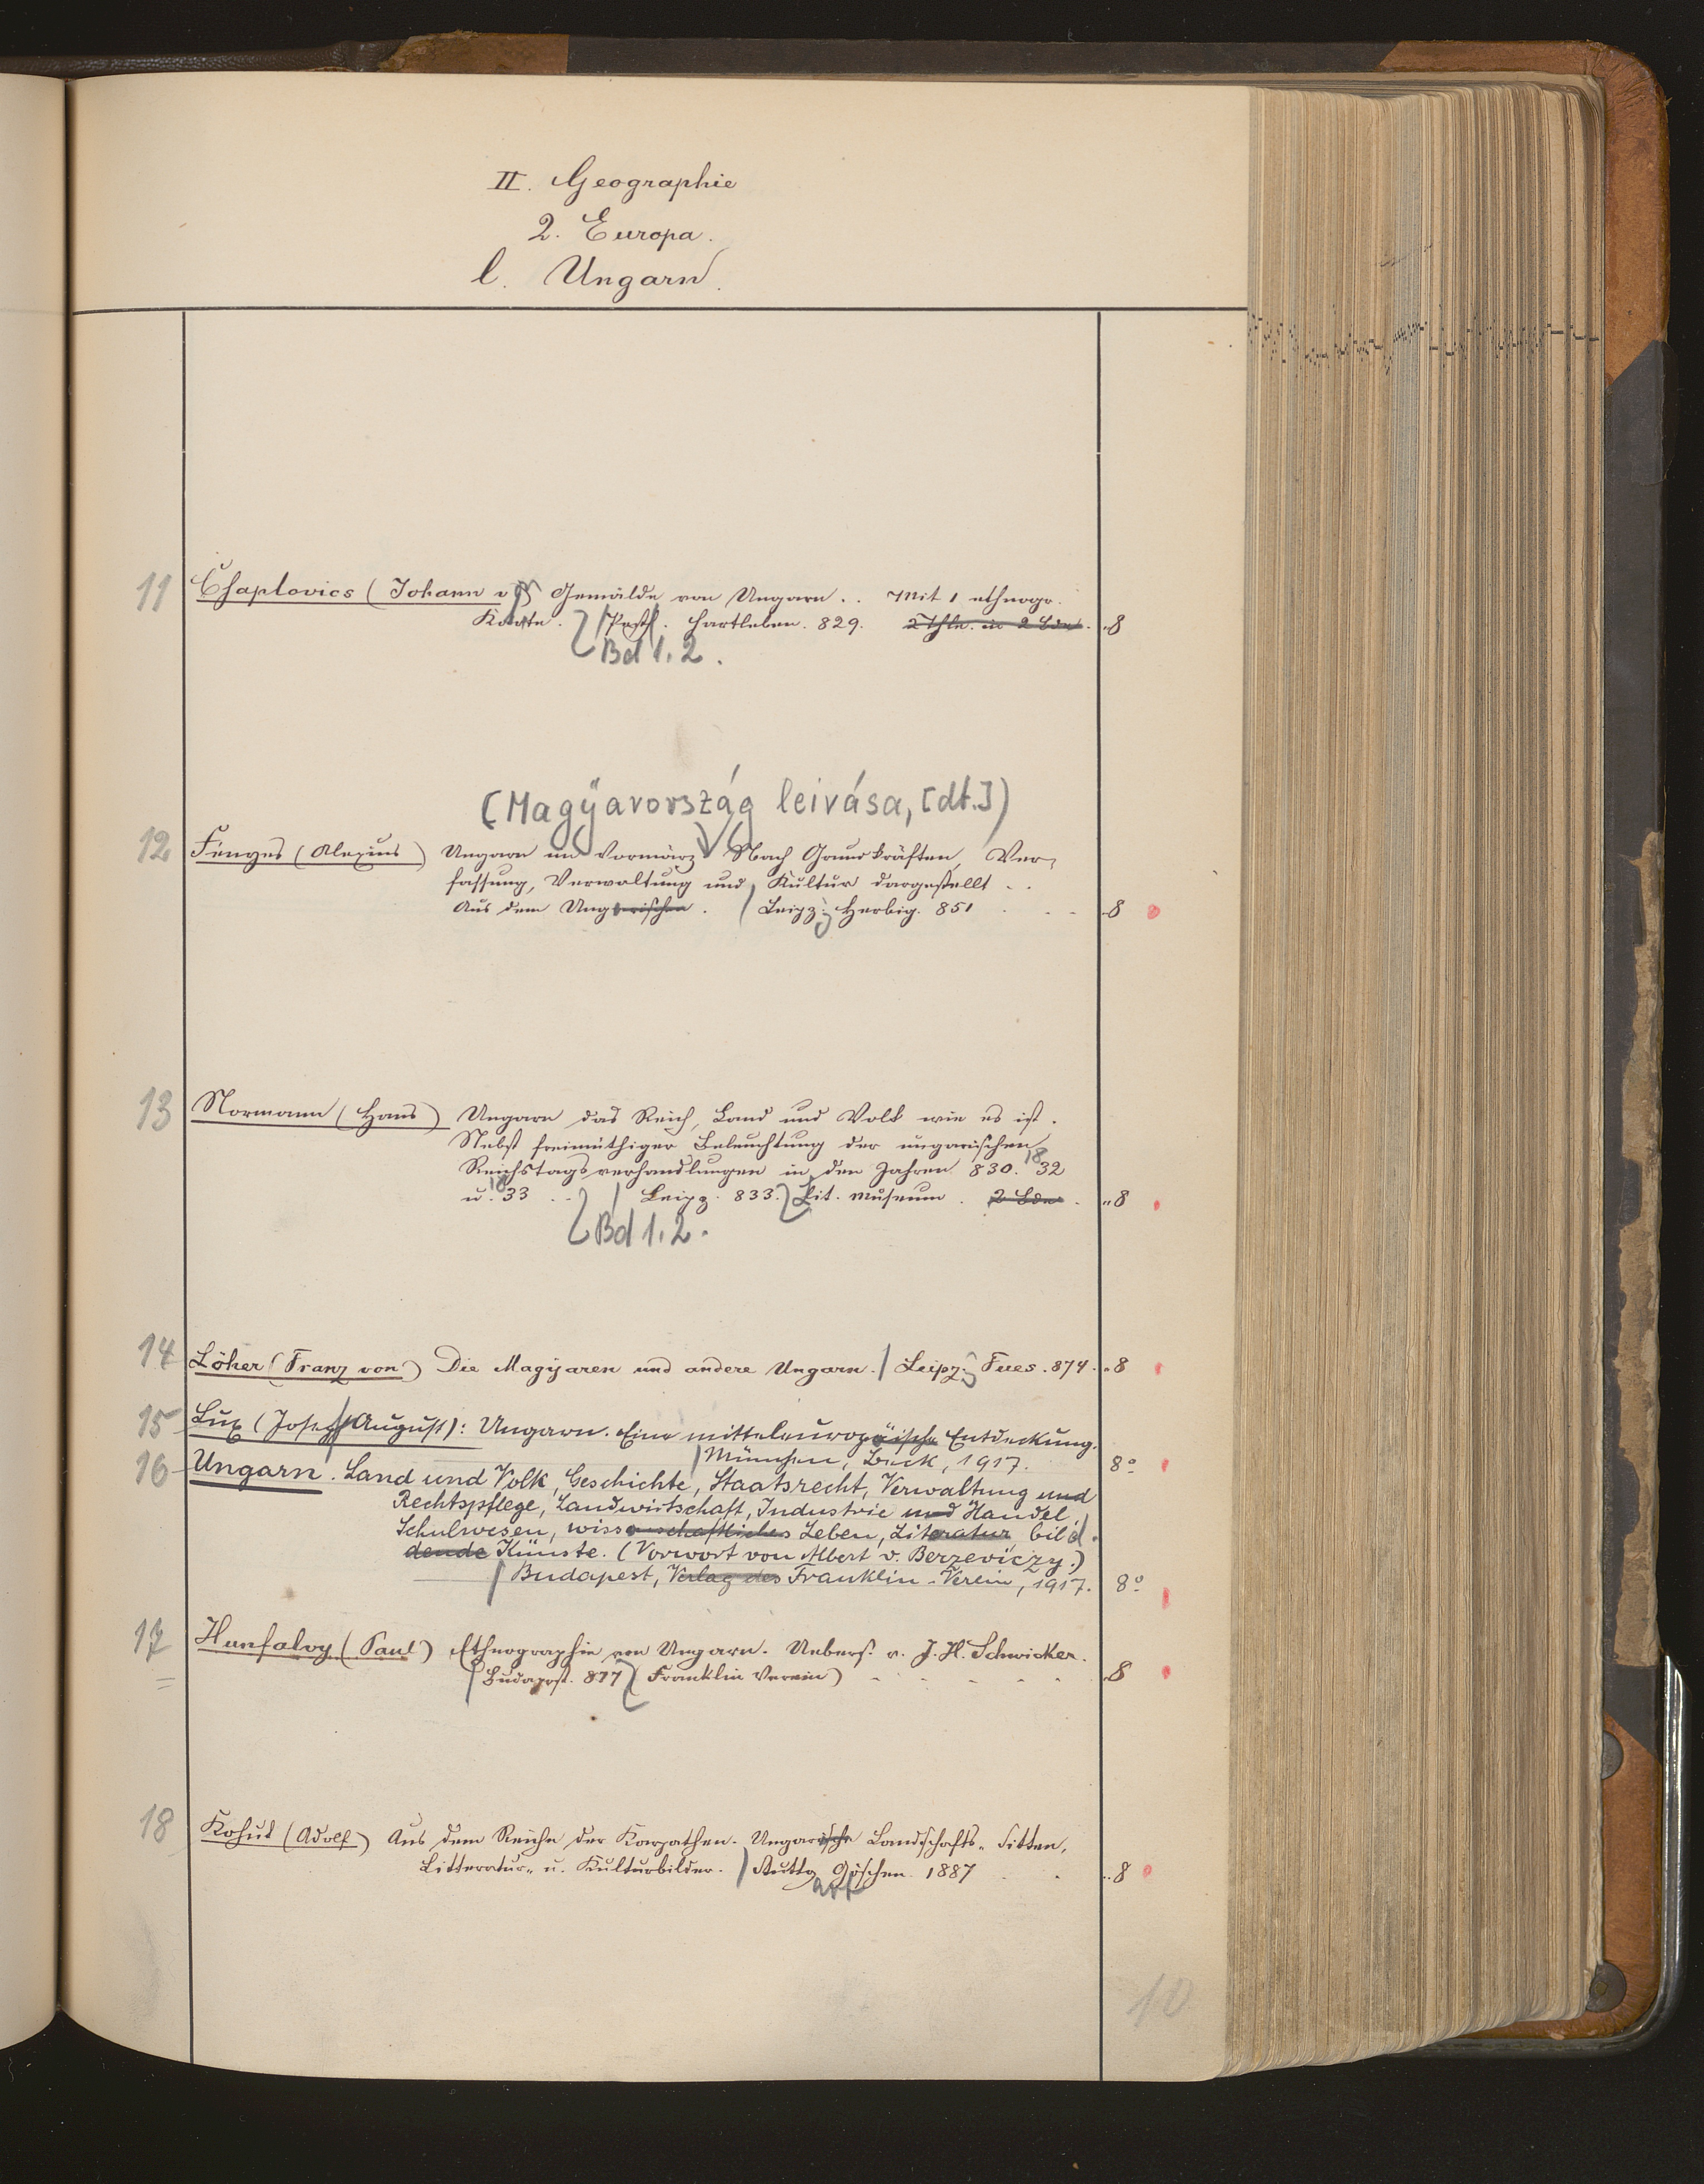 II. Geographie
2. Europa.
l. Ungarn.
11 Chaplovics (Johann v.) Gemälde von Ungarn. . Mit 1 ethnogr.
Karte. / Pest. Hartleben. 829. 2 Thle. in 2 Bdn. "8
Bd 1. 2.
(Magyarország leivása, [dt.])
12 Fényes (Alexius) Ungarn im Vormärz Nach Grundkräften, Ver-
fassung, Verwaltung und Kultur dargestellt . .
Aus dem Ungarischen. / Leipz. Herbig. 851 8
13 Normann (Hans) Ungarn das Reich, Land und Volk wie es ist.
Nebst freimüthiger Beleuchtung der ungarischen
Reichstagsverhandlungen in den Jahren 830. 1832
u. 1833 . . / Leipz. 833. Lit. Museum. 2 Bde. "8
Bd 1. 2.
14 Löher (Franz von) Die Magyaren und andere Ungarn. / Leipz. Fues. 874. "8
15 Lux (Josef August): Ungarn. Eine mitteleuropäische Entdeckung.
/ München, Beck, 1917. 8°
16 Ungarn. Land und Volk, Geschichte, Staatsrecht, Verwaltung und
Rechtspflege, Landwirtschaft, Industrie und Handel,
Schulwesen, wissenschaftliches Leben, Literatur, bild.
dende Künste. (Vorwort von Albert v. Berzeviczy.)
/ Budapest, Verlag des Franklin-Verein, 1917. 8°
17 Hunfalvy (Paul) Ethnographie von Ungarn. Uebers. v. J. H. Schwicker.
/ Budapest. 877 (Franklin Verein) 8
18 Kohut (Adolf) Aus dem Reiche der Karpathen. Ungarische Landschafts-, Sitten,
Litteratur- u. Kulturbilder. / Stuttgart Göschen. 1887 "8
10